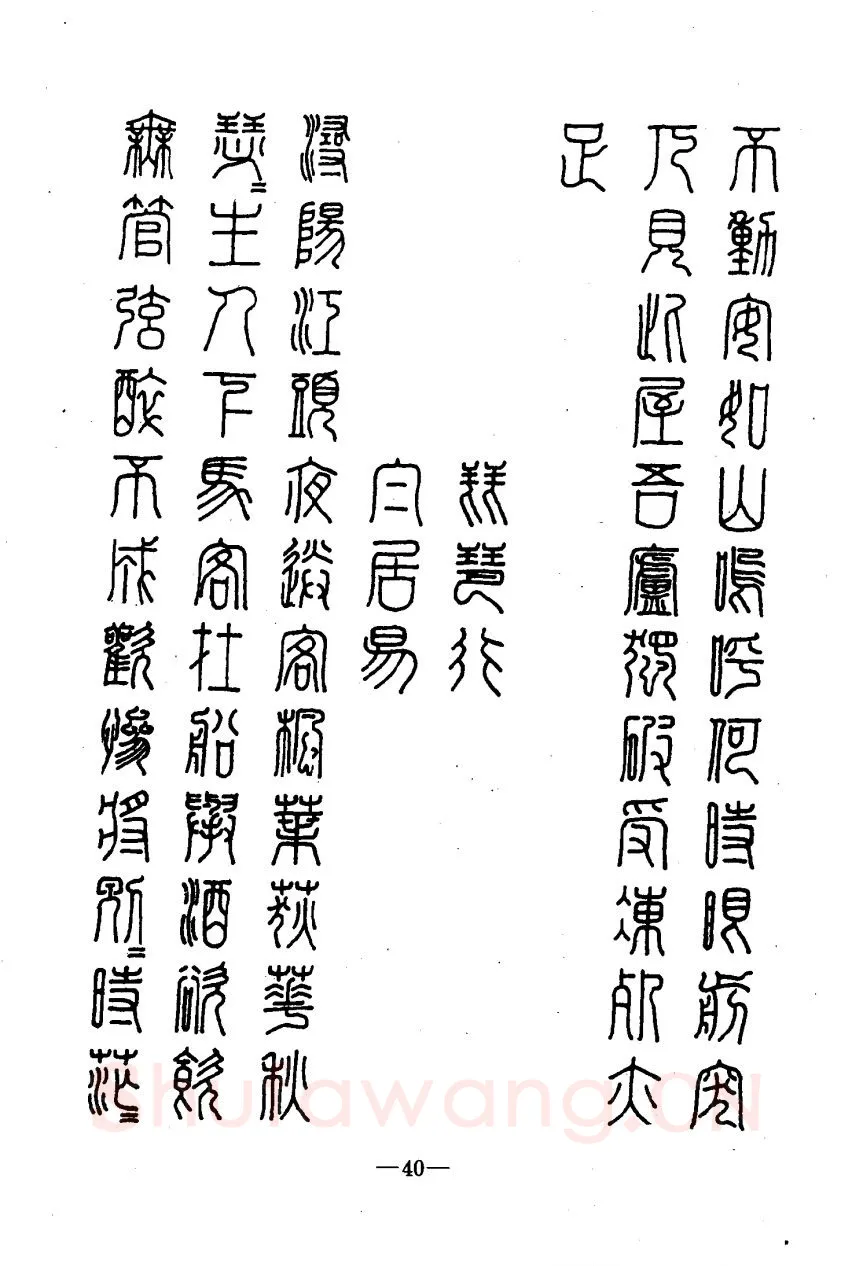 不動安如山嗚呼何時眼前突
兀見此屋吾廬獨破受凍死亦
足
琵琶行
白居易
潯陽江頭夜送客楓葉荻華秋
瑟=主人下馬客在船舉酒欲飲
無管弦醉不成歡慘將別=時茫=
—40—
Shufawang.CN